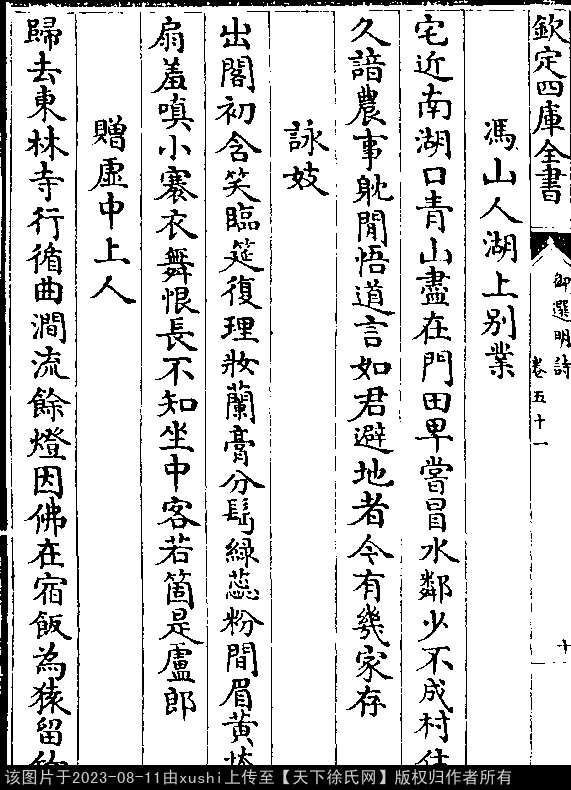 欽定四庫全書
御選明詩
卷五十一
十
馮山人湖上别業
宅近南湖口青山盡在門田卑嘗冒水鄰少不成村
久諳農事躭閒悟道言如君避地者今有幾家存
詠妓
出閣初含笑臨筵復理妝蘭膏分髩綠蕊粉間眉黃
扇羞嗔小褰衣舞恨長不知坐中客若箇是盧郎
贈虛中上人
歸去東林寺行循曲澗流餘燈因佛在宿飯為猿留
该图片于2023-08-11由xushi上传至【天下徐氏网】版权归作者所有